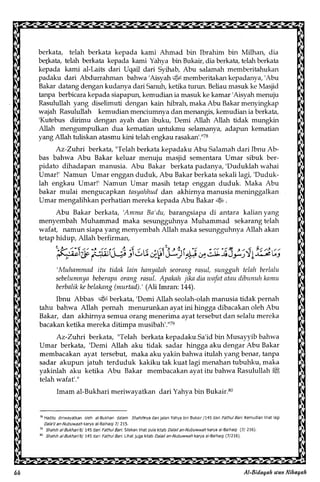 berkata, telah berkata kepada kami Ahmad bin Ibrahim bin Milhan, dia
berkata, telah berkata kepada kami Yahya bin Bukair, dia berkata, telah berkata
kepada kami al-Laits dari Uqail dari Syihab, Abu salamah memberitahukan
padaku dari Abdurrahman bahwa 'Aisyah memberitakan kepadanya, 'Abu
Bakar datang dengan kudanya dari Sanuh, ketika turun. Beliau masuk ke Masjid
tanpa berbicara kepada siapapun, kemudian ia masuk ke kamar 'Aisyah menuju
Rasulullah yang diselimuti dengan kain hibrah, maka Abu Bakar menyingkap
wajah Rasulullah kemudian menciumnya dan menangis, kemudian ia berkata,
'Kutebus dirimu dengan ayah dan ibuku, Demi Allah Allah tidak mungkin
Allah mengumpulkan dua kematian untukmu selamanya, adapun kematian
yang Allah tuliskan atasmu kini telah engkau rasakan'."78
Az-Zuhri berkata, "Telah berkata kepadaku Abu Salamah dari Ibnu Ab-
bas bahwa Abu Bakar keluar menuju masjid sementara Umar sibuk ber-
pidato dihadapan manusia. Abu Bakar berkata padanya, 'Duduklah wahai
Umar!' Namun Umar enggan duduk, Abu Bakar berkata sekali lagi, 'Duduk-
lah engkau Umar!' Namun Umar masih tetap enggan duduk. Maka Abu
bakar mulai mengucapkan tasyahhud dan akhirnya manusia meninggalkan
Umar mengalihkan perhatian mereka kepada Abu Bakar .
Abu Bakar berkata, 'Amma Ba'du, barangsiapa di antara kalian yang
menyembah Muhammad maka sesungguhnya Muhammad sekarang telah
wafat, namun siapa yang menyembah Allah maka sesungguhnya Allah akan
tetap hidup, Allah berfirman,
'Muhammad itu tidak lain hanyalah seorang rasul, sungguh telah berlalu
sebelumnya beberapa orang rasul. Apakah jika dia wafat atau dibunuh kamu
berbalik ke belakang (murtad).' (Ali Imran: 144).
Ibnu Abbas berkata, 'Demi Allah seolah-olah manusia tidak pernah
tahu bahwa Allah pernah menurunkan ayat ini hingga dibacakan oleh Abu
Bakar, dan akhirnya semua orang menerima ayat tersebut dan selalu mereka
bacakan ketika mereka ditimpa musibah'."79
Az-Zuhri berkata, "Telah berkata kepadaku Sa'id bin Musayyib bahwa
Umar berkata, 'Demi Allah aku tidak sadar hingga aku dengar Abu Bakar
membacakan ayat tersebut, maka aku yakin bahwa itulah yang benar, tanpa
sadar akupun jatuh terduduk kakiku tak kuat lagi menahan tubuhku, maka
yakinlah aku ketika Abu Bakar membacakan ayat itu bahwa Rasulullah
telah wafat'."
Imam al-Bukhari meriwayatkan dari Yahya bin Bukair.80
66
Al-Bidayah wan Nihayah